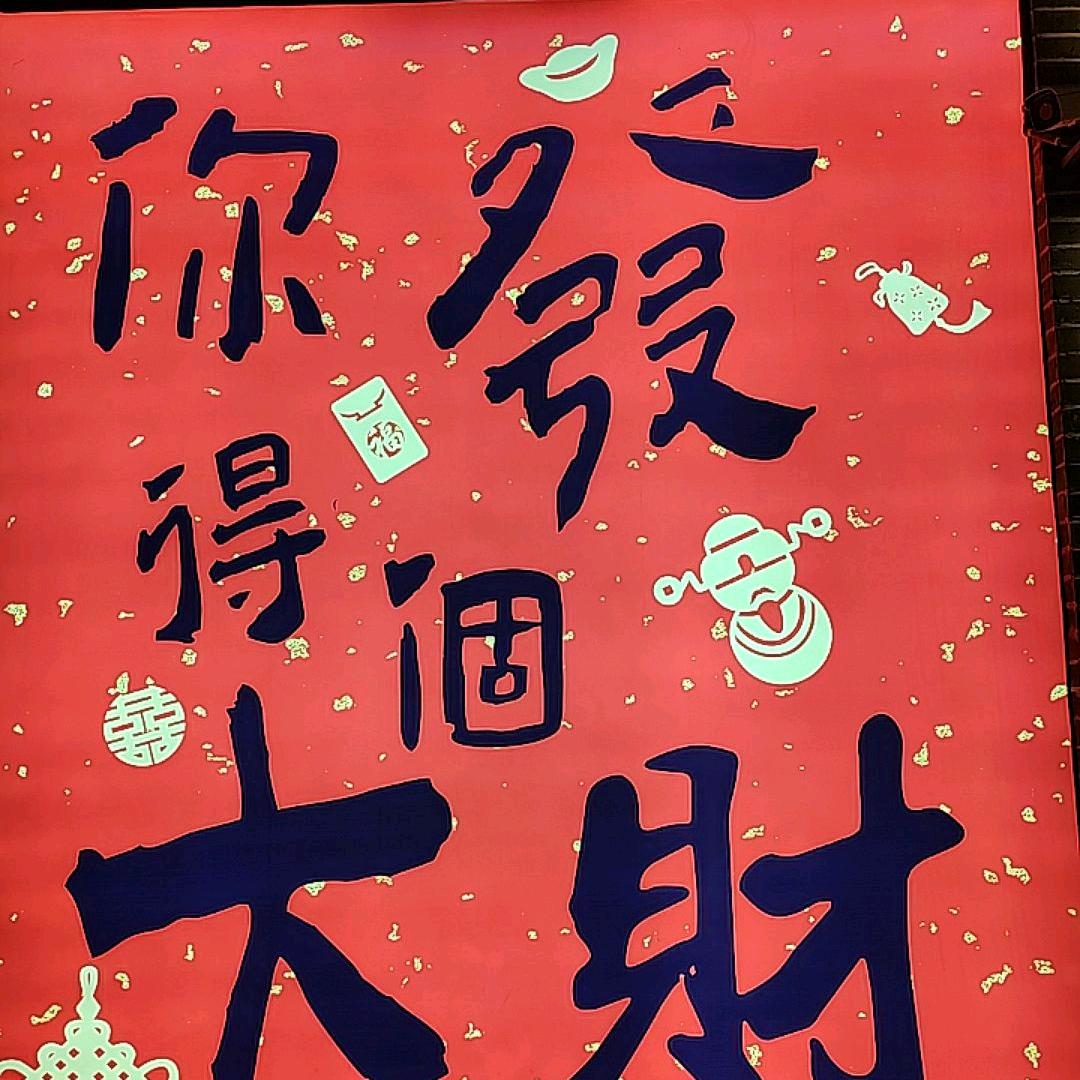 你發
福
得個
囍
大財